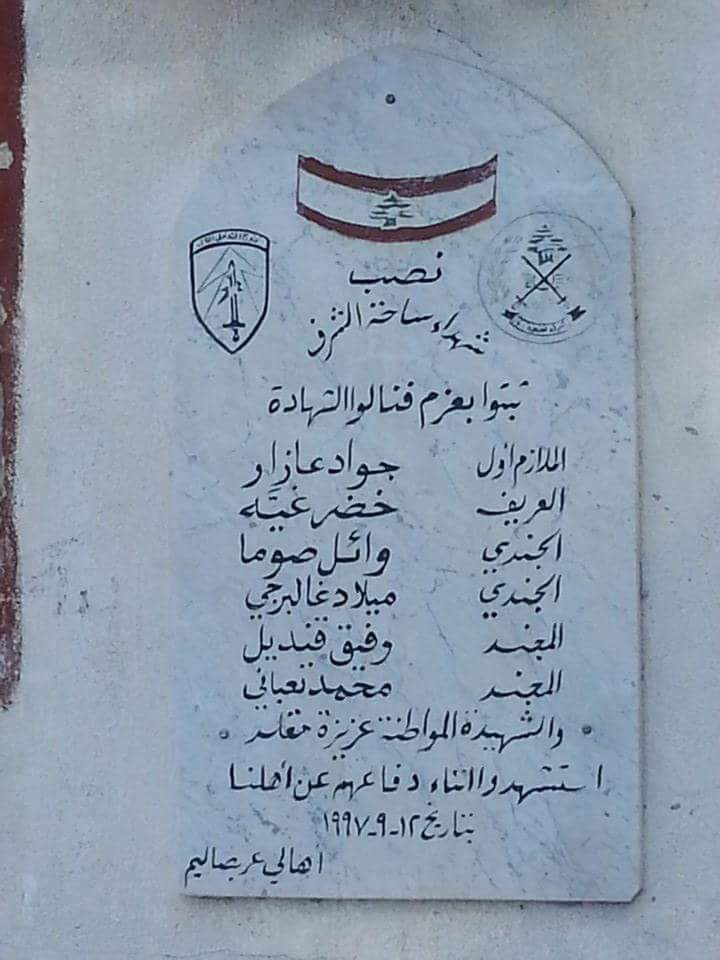 نصب
شهداء ساحة الشرف
ثبتوا بعزم فنالوا الشهادة
الملازم اول جواد عازار
العريف خضر غيّه
الجندي وائل صوما
الجندي ميلاد غالبرجي
المجند وفيق قنديل
المجند محمد نعباني
والشهيدة المواطنة عزيزة مقلد
استشهدوا اثناء دفاعهم عن أهلنا
بتاريخ ١٢-٩-١٩٩٧
اهالي عربصاليم